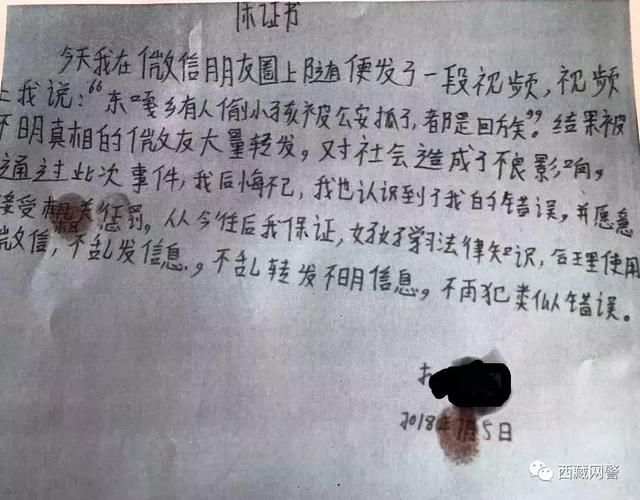 保证书
今天我在微信朋友圈上随便发了一段视频，视频
上我说：“东嘎乡有人偷小孩被公安抓了，都是回族”。结果被
不明真相的微友大量转发，对社会造成了不良影响，
通过此次事件，我后悔不已，我也认识到了我的错误，并愿意
接受相关惩罚。从今往后我保证，好好学习法律知识，合理使用
微信，不乱发信息，不乱转发不明信息，不再犯类似错误。
2018年7月5日
西藏网警